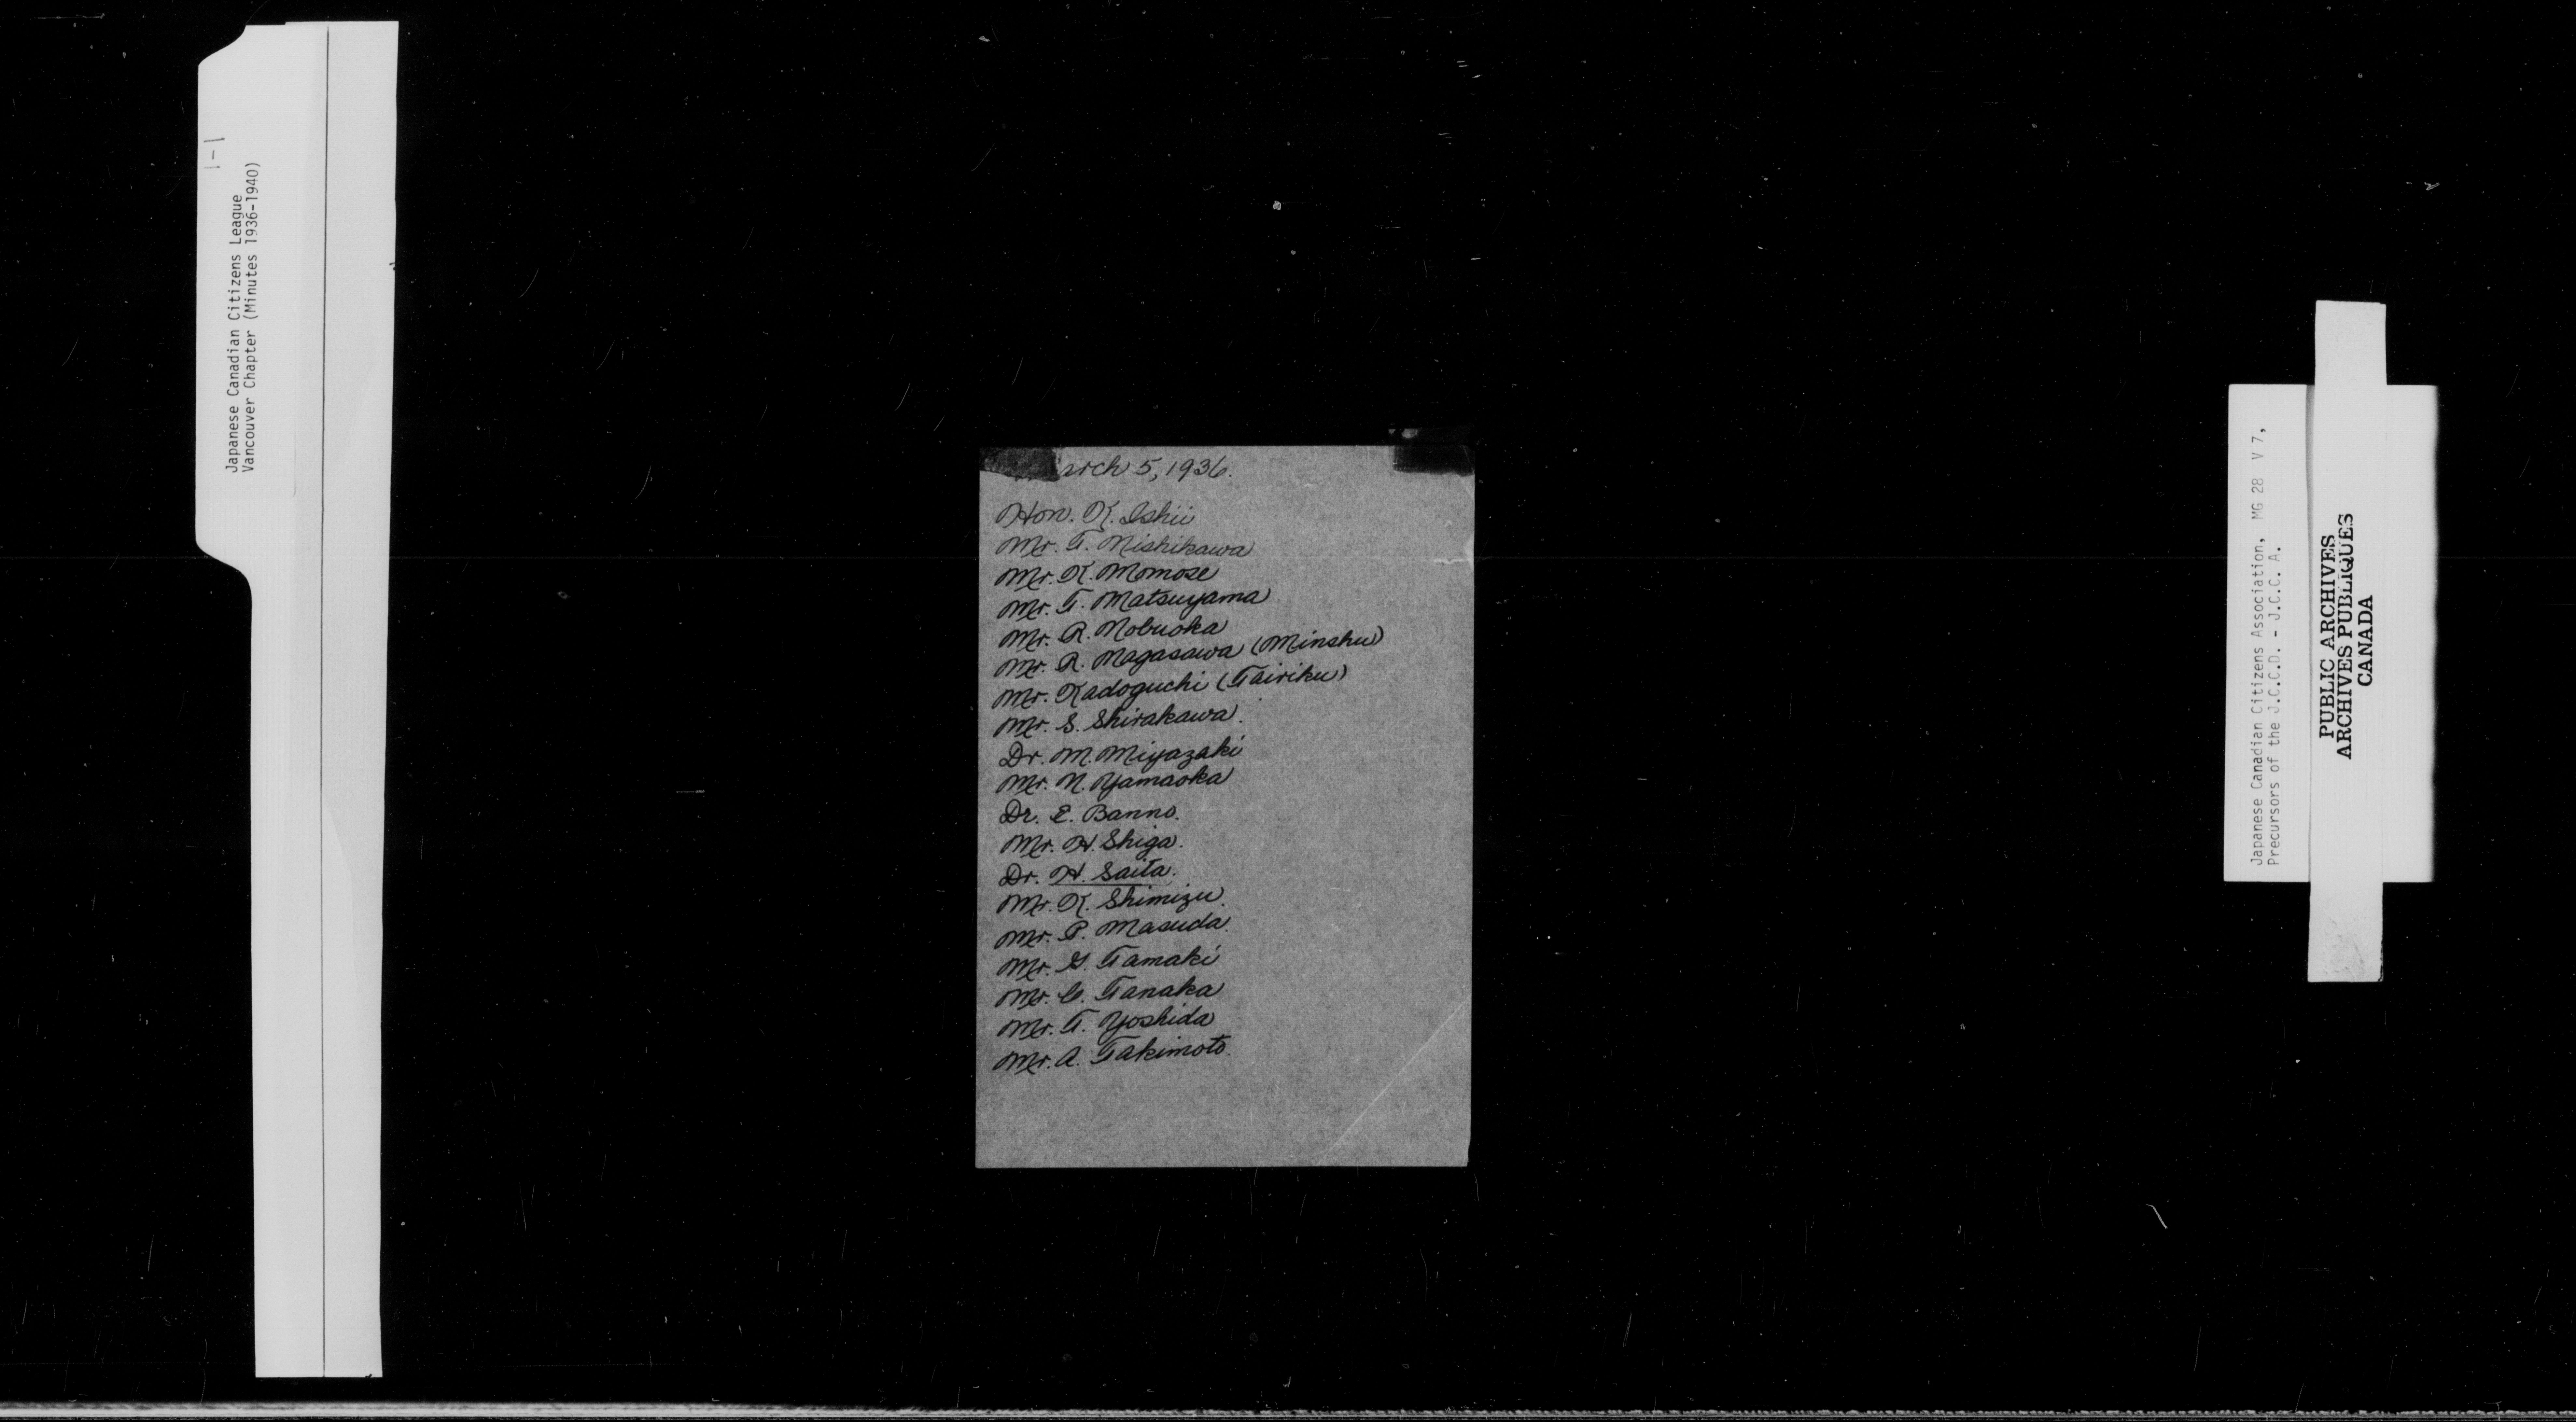 1-1
Japanese Canadian Citizens League
Vancouver Chapter (Minutes 1936-1940)
arch 5, 1936.
Hon. K. Ishii
Mr. T. Nishikawa
Mr. K. Momose
Mr. T. Matsuyama
Mr. R. Nobuoka
Mr. R. Nagasawa (Minshu)
Mr. Kadoguchi (Tairiku)
Mr. S. Shirakawa.
Dr. M. Miyazaki
Mr. N. Yamaoka
Dr. E. Banno.
Mr. H. Shiga.
Dr. H. Saita.
Mr. K. Shimizu.
Mr. P. Masuda.
Mr. G. Tamaki
Mr. C. Tanaka
Mr. T. Yoshida
Mr. A. Takimoto.
Japanese Canadian Citizens Association, MG 28 V 7,
Precursors of the J.C.C.D. - J.C.C. A.
PUBLIC ARCHIVES
ARCHIVES PUBLIQUES
CANADA